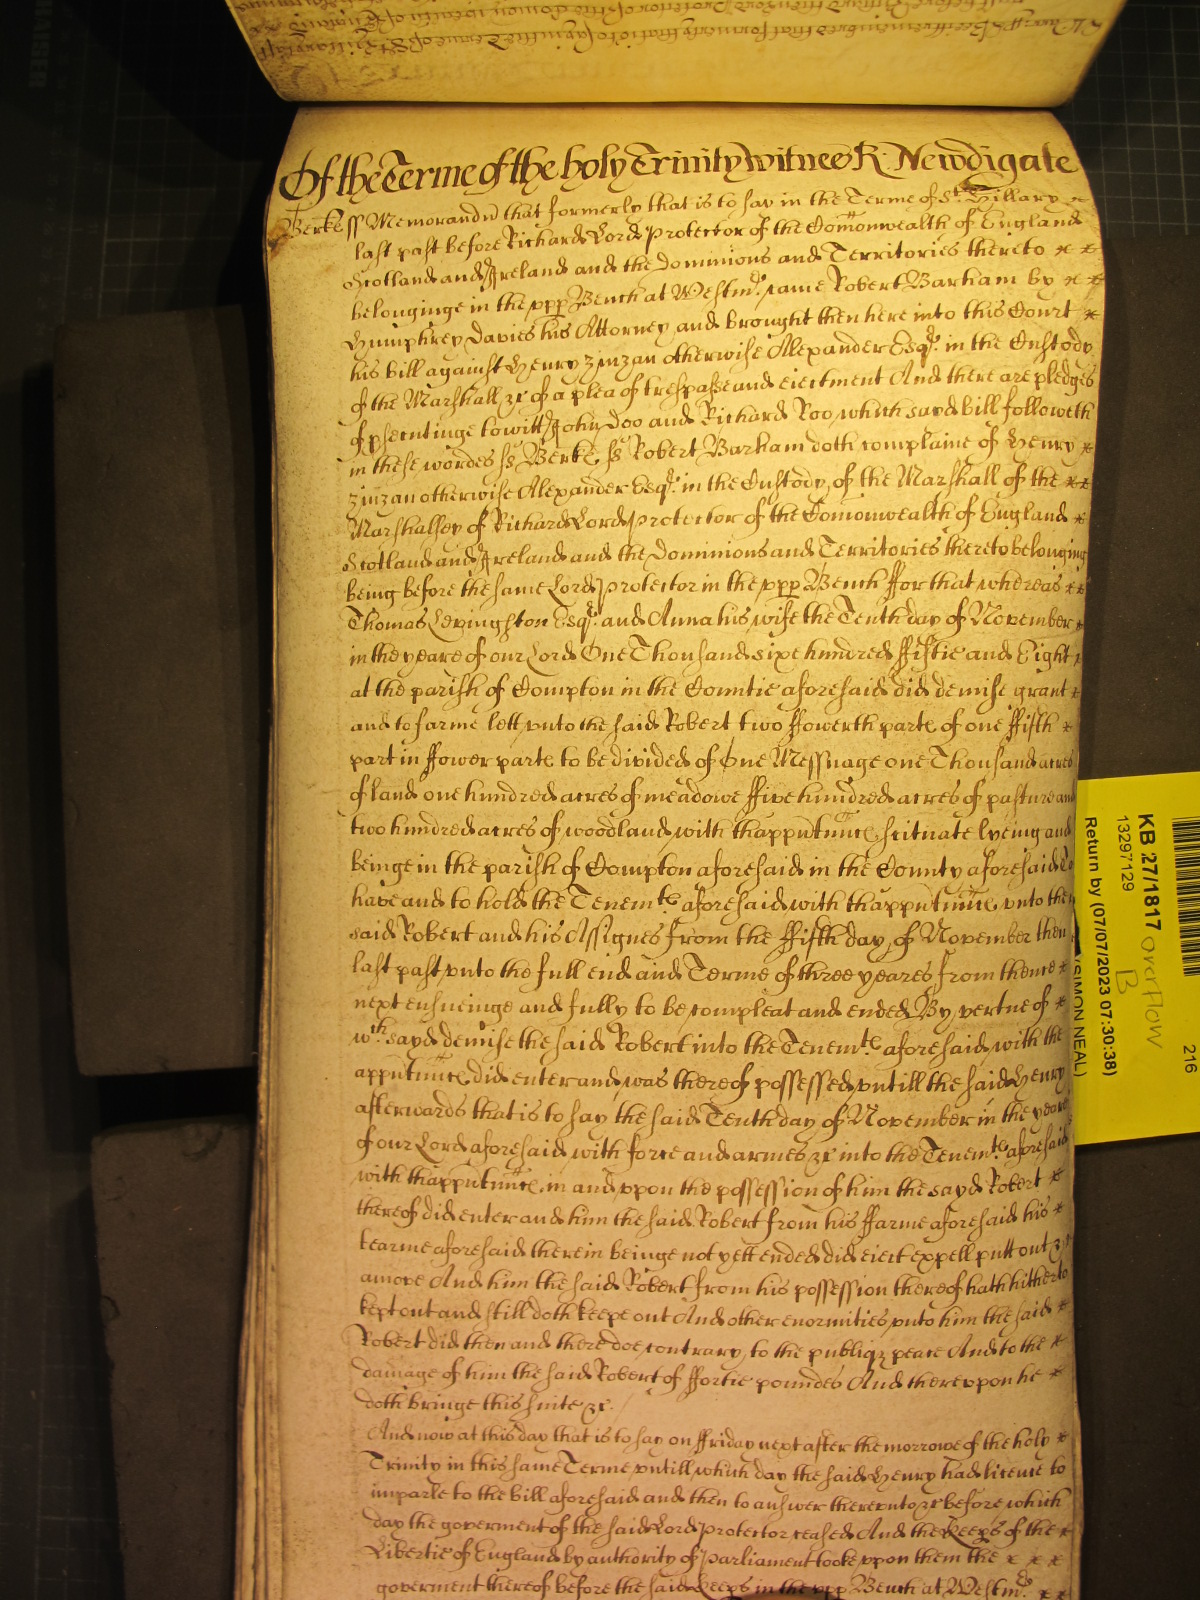 Of the Terme of the holy Trinity witnes R: Newdigate
Berk ss Memorand that formerly that is to say in the Terme of St. Hillary
last past before Richard Lord Protector of the Comonwealth of England
Scotland and Ireland and the dominions and Territories thereto
belonginge in the upp Bench at Westmr. came Robert Barham by
Humphrey Davies his Attorney and brought then here into this Court
his bill against Henry Zinzan otherwise Alexander Esqr. in the Custody
of the Marshall &c of a plea of trespasse and eiectment And there are pledges
of psecutinge towitt John Doo and Richard Roo which sayd bill followeth
in these wordes ss Berk ss Robert Barham doth complaine of Henry
Zinzan otherwise Alexander Esqr. in the Custody of the Marshall of the
Marshallsey of Richard Lord Protector of the Comonwealth of England
Scotland and Ireland and the Dominions and Territories thereto belonging
being before the same Lord Protector in the upp Bench ffor that whereas
Thomas Levingston Esqr. and Anna his wife the Tenth day of November
in the yeare of our Lord One Thousand sixe hundred ffiftie and Eight
at the parish of Compton in the Countie aforesaid did demise grant
and to farme lett unto the said Robert two ffowerth parts of one ffifth
part in ffower parts to be divided of One Messuage one Thousand acres
of land one hundred acres of meadowe ffive hundred acres of pasture and
two hundred acres of woodland with thapputnncs scituate lyeing and
beinge in the parish of Compton aforesaid in the County aforesaid To
have and to hold the Tenemts aforesaid with thapputnncs unto the
said Robert and his Assignes from the ffifth day of November then
last past unto the full end and Terme of three yeares from thence
next ensueinge and fully to be compleat and ended By vertue of
wch sayd demise the said Robert into the Tenemts aforesaid with the
apputnncs did enter and was thereof possessed untill the said Henry
afterwards that is to say the said Tenth day of November in the yeare
of our Lord aforesaid with force and armes &c into the Tenemts aforesaid
with thapputnncs in and upon the possession of him the sayd Robert
thereof did enter and him the said Robert from his ffarme aforesaid his
tearme aforesaid therein beinge not yett ended did eiect expell putt out &
amove And him the said Robert from his possession thereof hath hitherto
kept out and still doth keepe out And other enormities unto him the said
Robert did then and there doe contrary to the publiq peace And to the
damage of him the said Robert of ffortie poundes And thereupon he
doth bringe this suite &c.
And now at this day that is to say on ffriday next after the morrowe of the holy
Trinity in this same Terme untill which day the said Henry had licence to
imparle to the bill aforesaid and then to answer thereunto &c before which
day the goverment of the said Lord Protector ceased And the Keeps of the
Libertie of England by authority of Parliament tooke upon them the
goverment thereof before the said Keeps in the upp Bench at Westmr.
KB 27/1817 overflow
B
13297129
Return by (07/07/2023 07:30:38)
(SIMON NEAL)
216